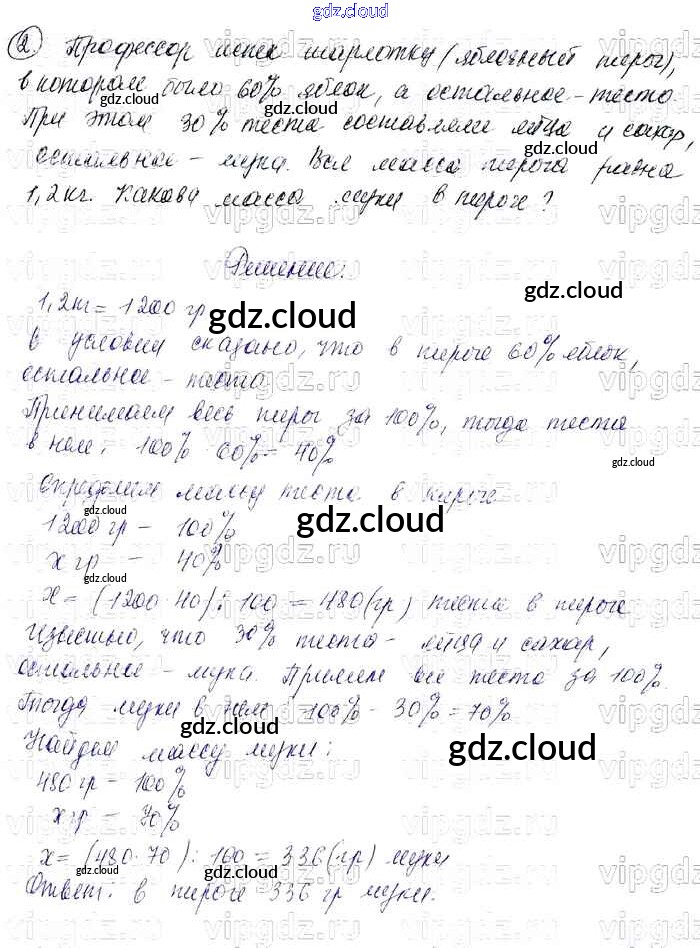 gdz.cloud
2. Профессор испек шарлотку (яблочный пирог),
в котором было 60% яблок, а остальное - тесто.
При этом 30% теста составляли яйца и сахар,
остальное - мука. Вся масса пирога равна
1,2 кг. Какова масса муки в пироге?
Решение:
1,2 кг = 1200 гр
В условии сказано, что в пироге 60% яблок,
остальное - тесто
Принимаем весь пирог за 100%, тогда теста
в нем: 100% 60% = 40%
Определим массу теста в пироге
1200 гр - 100%
x гр - 40%
x = (1200 40) : 100 = 480 (гр) теста в пироге
Известно, что 30% теста - яйца и сахар,
остальное - мука. Примем все тесто за 100%.
Тогда муки в нем: 100% - 30% = 70%
Найдем массу муки:
480 гр - 100%
x гр - 70%
x = (480 · 70) : 100 = 336 (гр) муки
Ответ: в пироге 336 гр муки.